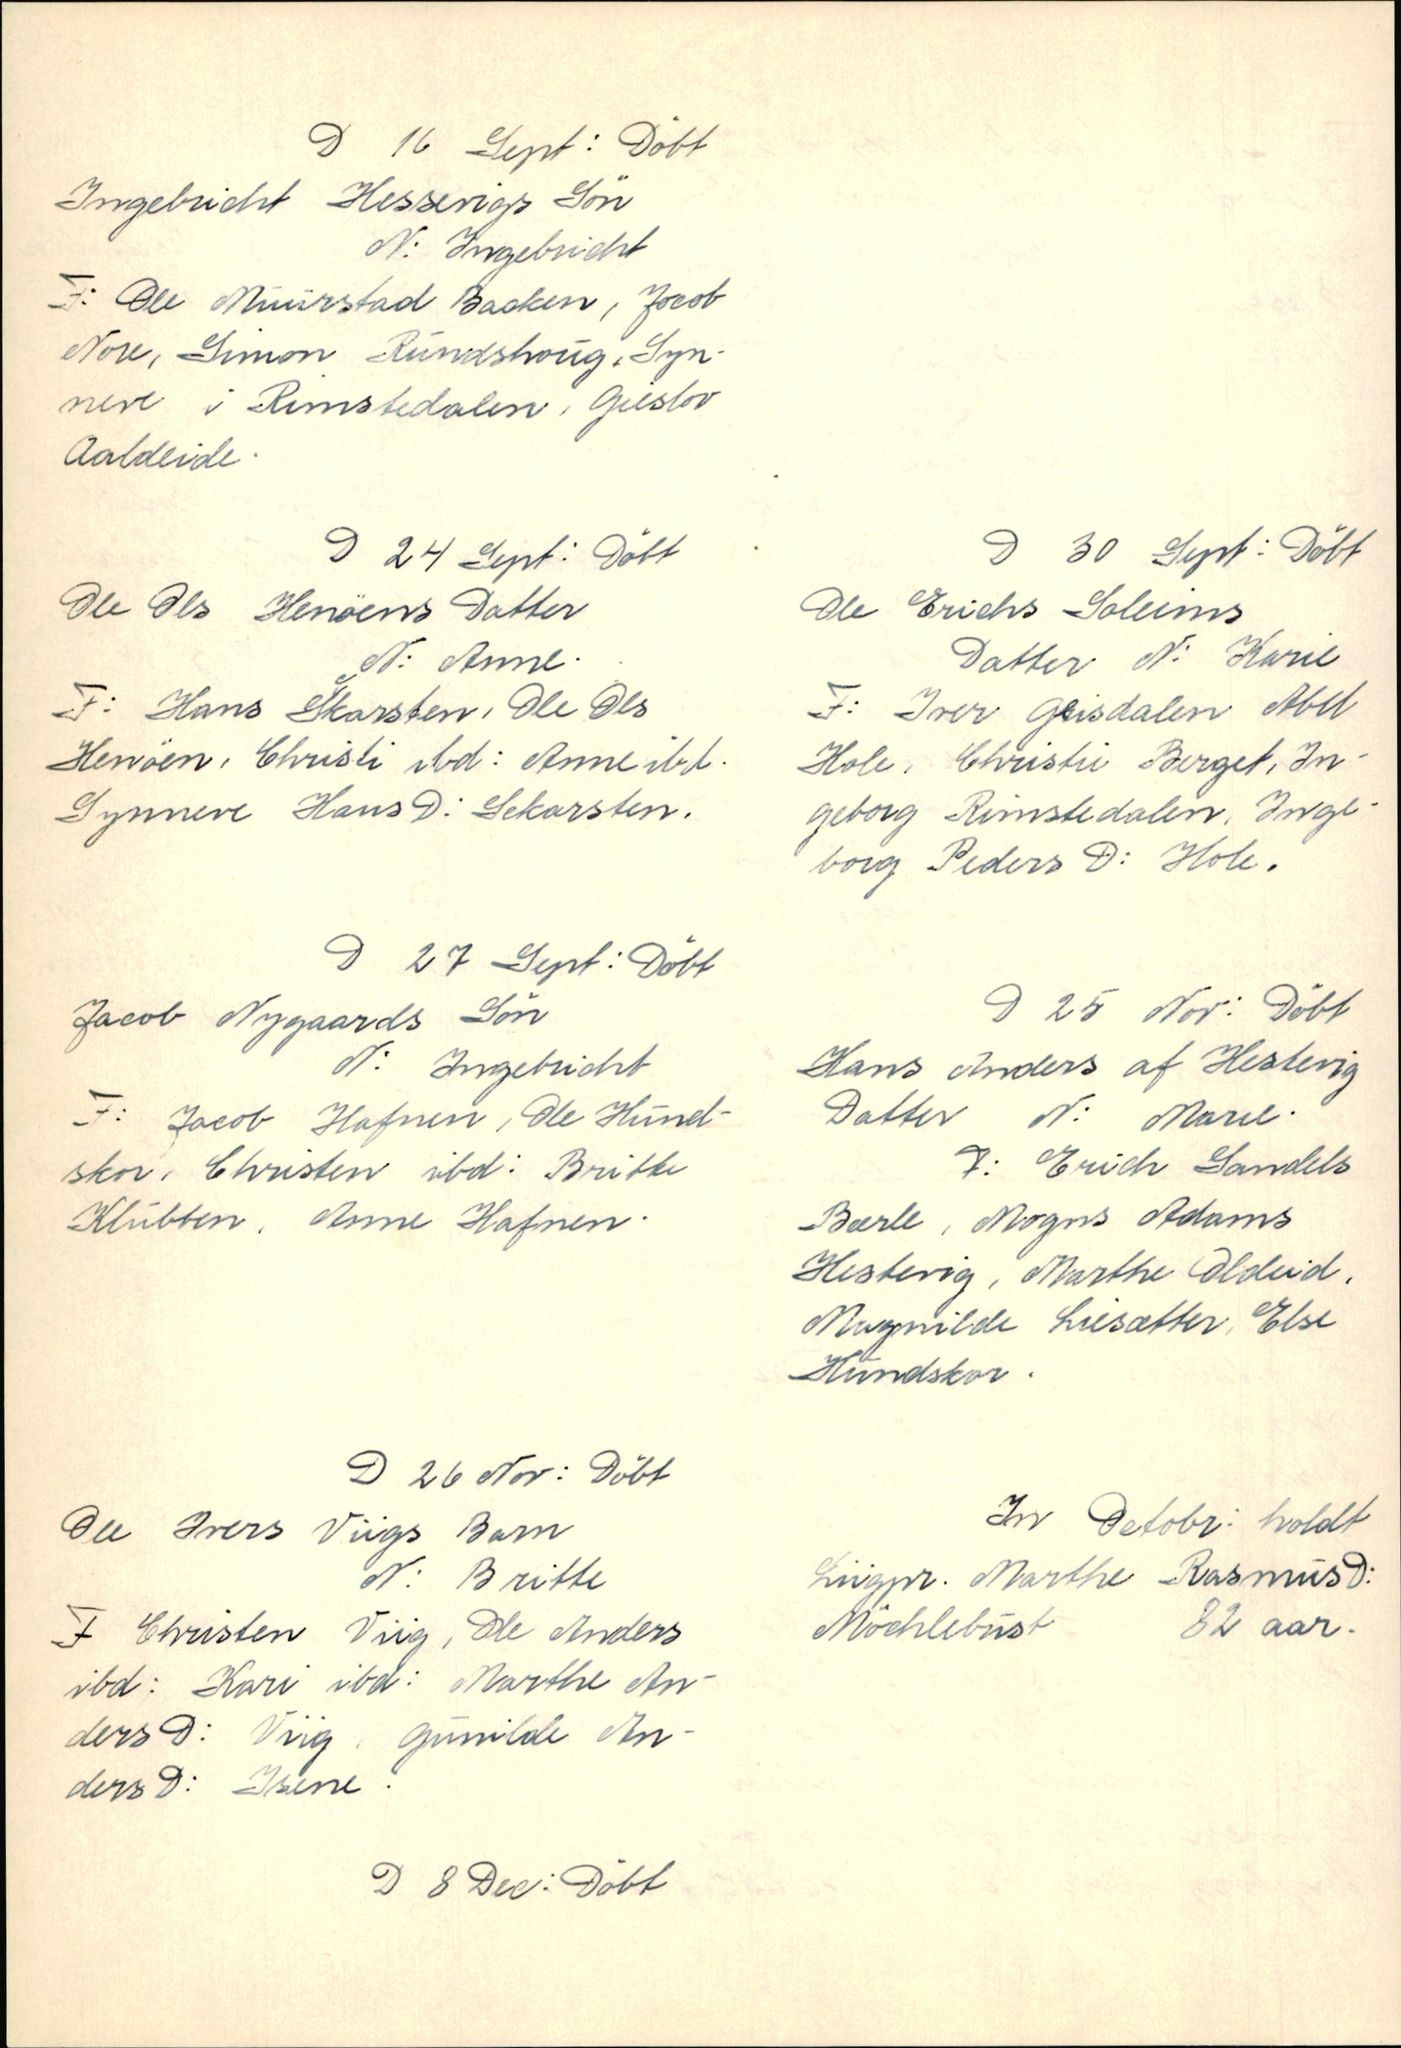 D 16 Sept: Döbt
Ingebricht Hessevigs Sön
N: Ingebricht
F: Ole Muurstad Backen, Jacob
Nore, Simon Rundshoug, Syn-
neve i Rimstedalen, Gieslov
Aaldeide.
D 24 Sept: Döbt
Ole Ols Henöens Datter
N: Anne.
F: Hans Skarsten, Ole Ols
Henöen, Christi ibd: Anne ibd.
Synneve Hans D: Sckarsten.
D 27 Sept: Döbt
Jacob Nygaards Sön
N: Ingebricht
F: Jacob Hafnen, Ole Hund-
skor, Christen ibd: Britte
Klubben, Anne Hafnen.
D 26 Nov: Döbt
Ole Ivers Viigs Barn
N: Britte
F Christen Viig, Ole Anders
ibd: Kari ibd: Marthe An-
ders D: Viig, Gunilde An-
ders D: Isene.
D 8 Dec: Döbt
D 30 Sept: Döbt
Ole Erichs Soleims
Datter N: Karie
F: Iver Geisdalen Abel
Hole, Christie Berget, In-
geborg Rimstedalen, Inge-
borg Peders D: Hole.
D 25 Nov: Döbt
Hans Anders af Hestevig
Datter N: Marie.
F: Erich Sandels
Bærle, Mogns Adams
Hestevig, Marthe Oldeid,
Magnilde Liesætter, Else
Hundskor.
In Octobr: holdt
Liigpr. Marthe Rasmus D:
Möchlebust 82 aar.